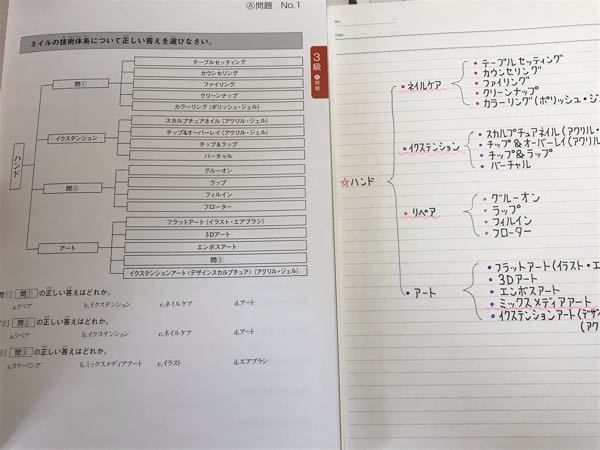 Ⓐ問題 No.1
ネイルの技術体系について正しい答えを選びなさい。
3級
Ⓐ問題
ハンド
問①
テーブルセッティング
カウンセリング
ファイリング
クリーンナップ
カラーリング(ポリッシュ・ジェル)
イクステンション
スカルプチュアネイル(アクリル・ジェル)
チップ&オーバーレイ(アクリル・ジェル)
チップ&ラップ
バーチャル
問②
グルーオン
ラップ
フィルイン
フローター
アート
フラットアート(イラスト・エアブラシ)
3Dアート
エンボスアート
問③
イクステンションアート(デザインスカルプチュア)(アクリル・ジェル)
問① の正しい答えはどれか。
a.リペア b.イクステンション c.ネイルケア d.アート
問② の正しい答えはどれか。
a.リペア b.イクステンション c.ネイルケア d.アート
問③ の正しい答えはどれか。
a.カラーリング b.ミックスメディアアート c.イラスト d.エアブラシ
No.
Date
☆ハンド
・ネイルケア
・テーブルセッティング
・カウンセリング
・ファイリング
・クリーンナップ
・カラーリング(ポリッシュ・ジェ
・イクステンション
・スカルプチュアネイル(アクリル・
・チップ&オーバーレイ(アクリル・
・チップ&ラップ
・バーチャル
・リペア
・グルーオン
・ラップ
・フィルイン
・フローター
・アート
・フラットアート(イラスト・エ
・3Dアート
・エンボスアート
・ミックスメディアアート
・イクステンションアート(デザ
(アク